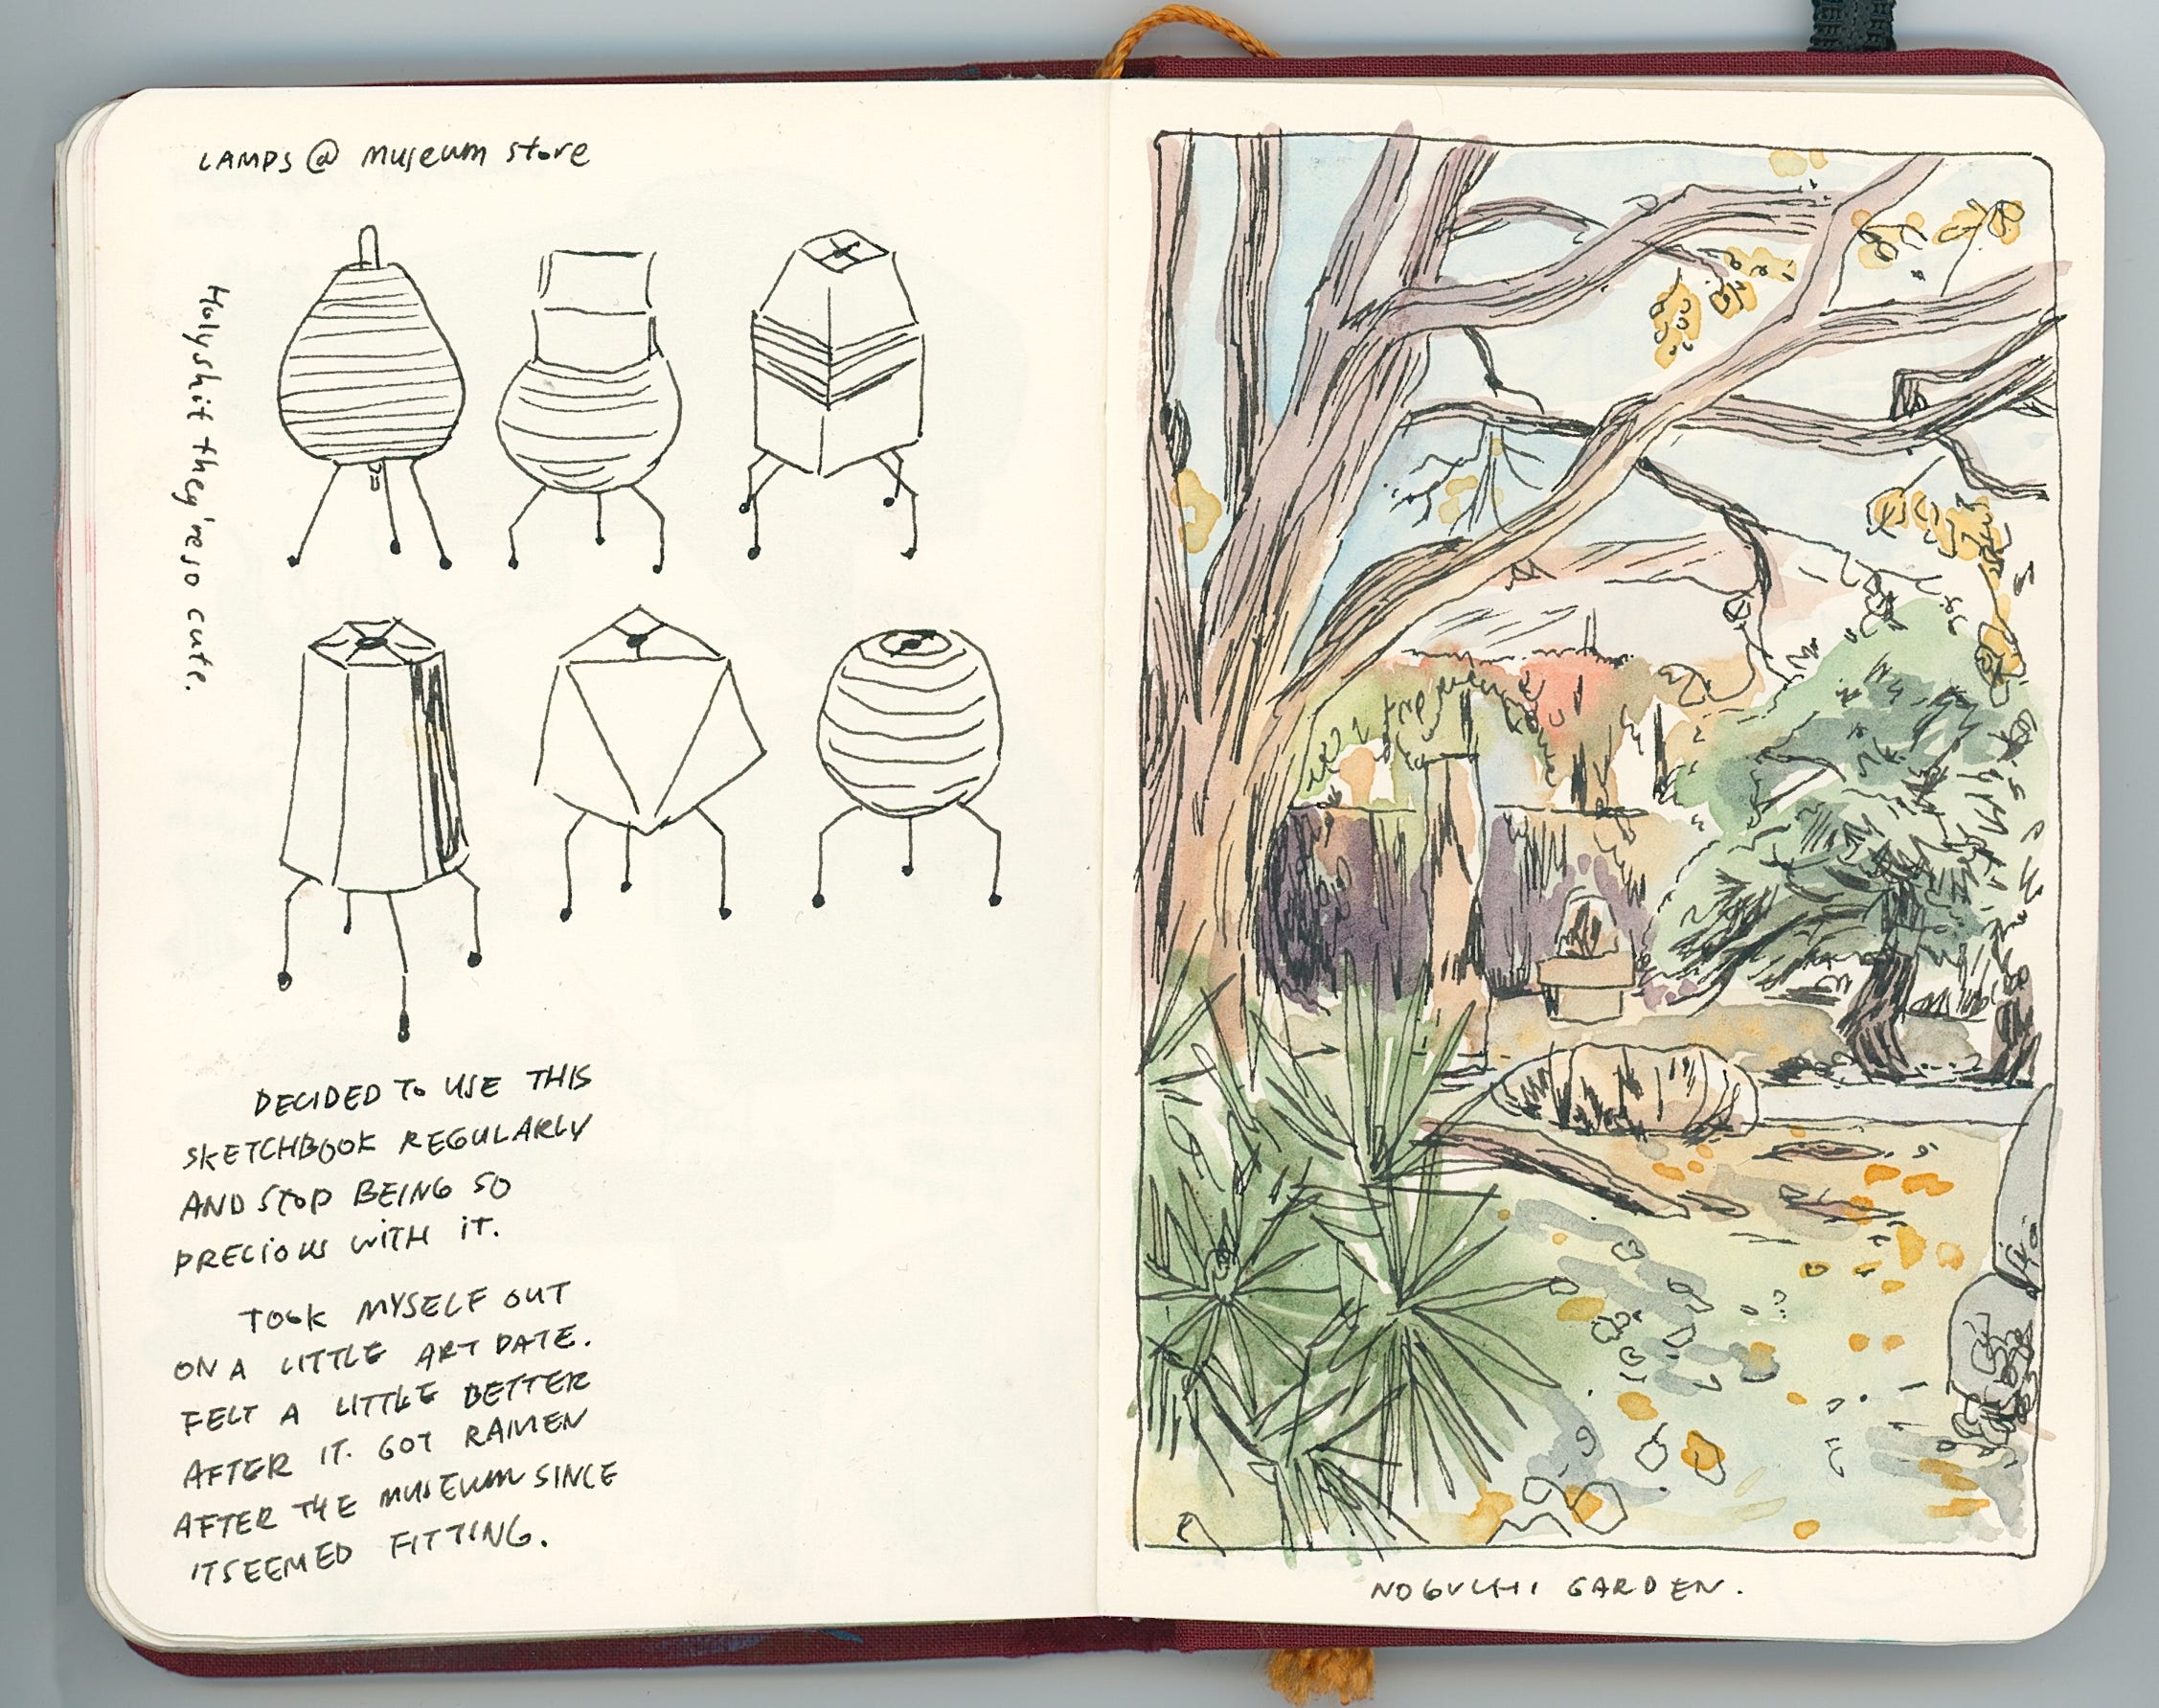 LAMPS @ museum store
Holyshit they're so cute.
DECIDED To USE THIS
SKETCHBOOK REGULARLY
AND STOP BEING SO
PRECIOUS WITH IT.
TOOK MYSELF OUT
ON A LITTLE ART DATE.
FELT A LITTLE BETTER
AFTER IT. GOT RAMEN
AFTER THE MUSEUM SINCE
IT SEEMED FITTING.
NOGUCHI GARDEN.